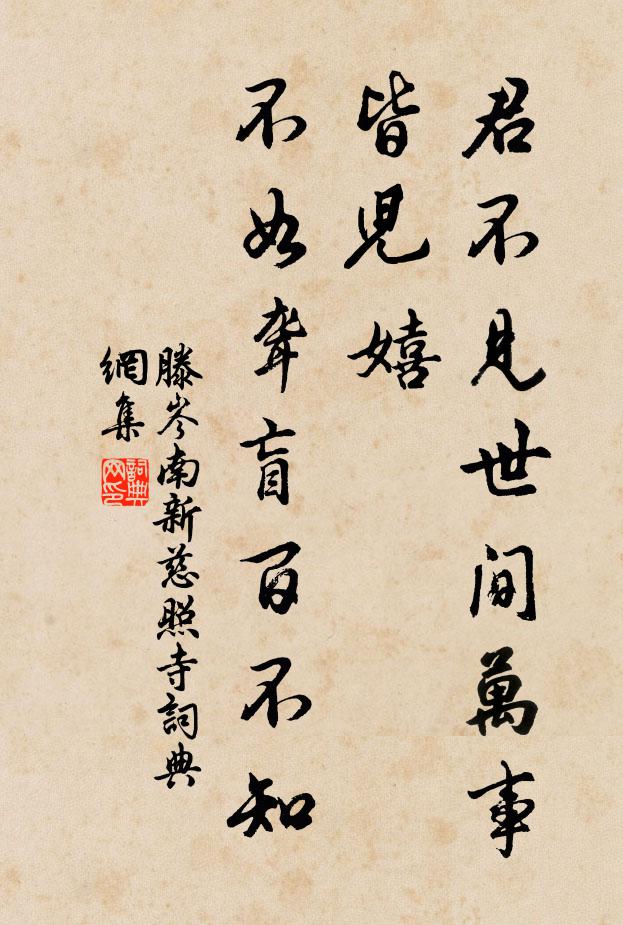 君不見世間萬事
皆兒嬉
不如聾盲百不知
滕岑南新慈照寺詞典
網集
詞典
网印